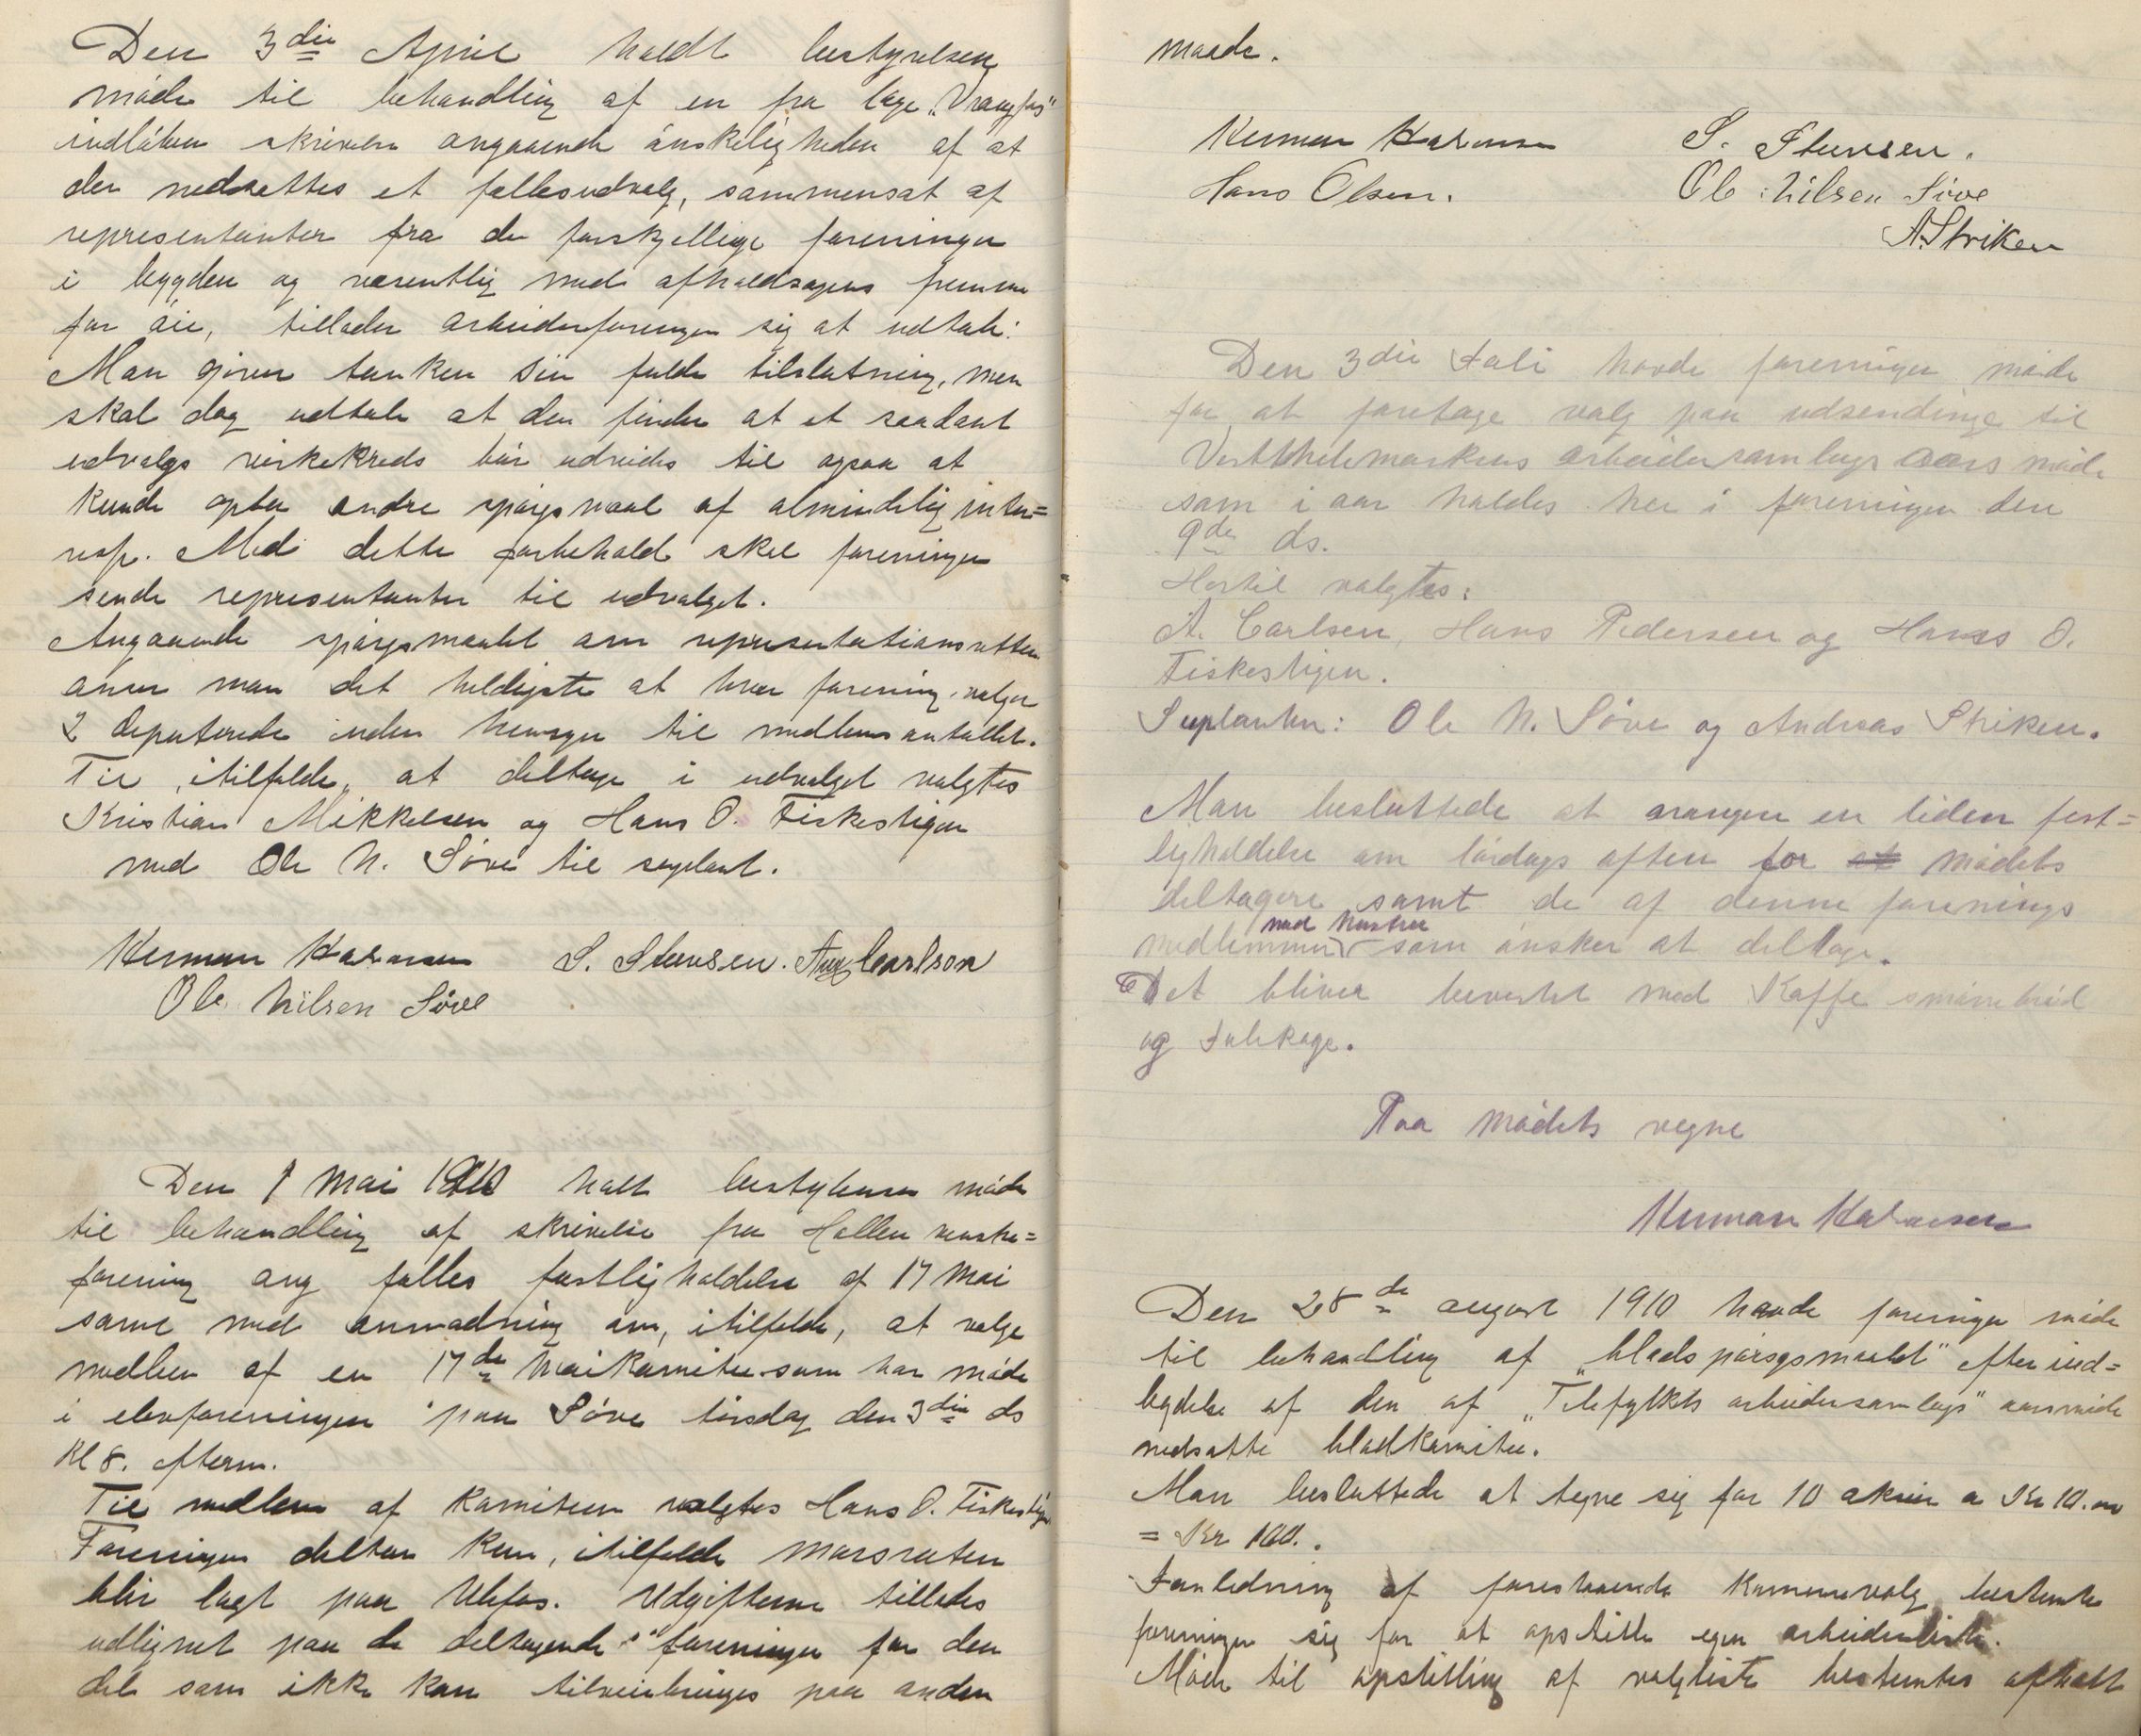 Den 3die April holdt bestyrelsen
møde til behandling af en fra loge "Vrangfos"
indløben skrivelse angaaende ønskeligheden af at
der nedsættes et fællesudvalg, sammensat af
representanter fra de forskjellige foreninger
i bygden og væsentlig med afholdsagens fremme
for øie, tillader arbeiderforeningen sig at udtale:
Man giver tanken sin fulde tilslutning, men
skal dog udtale at den finder at et saadant
udvalgs virkekreds bør udvides til ogsaa at
kunde opta andre spørgsmaal af almindelig inter=
esse. Med dette forbehold skal foreningen
sende representanter til udvalget.
Angaaende spørgsmaalet om representationsretten
anser man det heldigste at hver forening vælger
2 deputerede uden hensyn til medlemsantallet.
Til, itilfælde, at deltage i udvalget valgtes
Kristian Mikkelsen og Hans O. Fiskestigen
med Ole N. Søve til suplant.
Herman Halvorsen S. Stensen. Aug Carlson
Ole Nilsen Søve
Den 1 Mai 1910 holt bestyrelsen møde
til behandling af skrivelse fra Hollen venstre=
forening ang fælles festligholdelse af 17 Mai
samt med anmodning om, itilfælde, at vælge
medlem af en 17de Maikomite som har møde
i elevforeningen paa Søve tirsdag den 3die ds
Kl 8. efterm.
Til medlem af komiteen valgtes Hans O. Fiskestigen
Foreningen deltar kun, itilfælde marsruten
blir lagt paa Ulefos. Udgifterne tillades
udlignet paa de deltagende foreninger for den
del som ikke kan tilveiebringes paa anden
maade.
Herman Halvorsen S. Stensen.
Hans Olsen. Ole Nilsen Søve
A. Striken
Den 3die Juli havde foreningen møde
for at foretage valg paa udsendinge til
Vestthelemarkens arbeidersamlags aarsmøde
som i aar holdes her i foreningen den
9de ds.
Hertil valgtes:
A. Carlsen, Hans Pedersen og Hans O.
Fiskestigen.
Suplanter: Ole N. Søve og Andreas Striken.
Man besluttede at arangere en liden fest=
ligholdelse om lørdags aften for at mødets
deltagere samt de af denne forenings
med hustru
medlemmer som ønsker at deltage.
Det bliver bevertet med Kaffe smørrebrød
og Julekage.
Paa mødets vegne
Herman Halvorsen
Den 28de august 1910 havde foreningen møde
til behandling af "bladspørsgsmaalet" efter ind=
bydelse af den af "Telefylkets arbeidersamlags" aarsmøde
nedsatte bladkomitee.
Man besluttede at tegne sig for 10 aksier a Kr 10.00
= Kr 100..
Ianledning af forestaaende kommunevalg bestemte
foreningen sig for at opstille egen arbeiderliste.
Møde til opstilling af valgliste bestemtes afholt